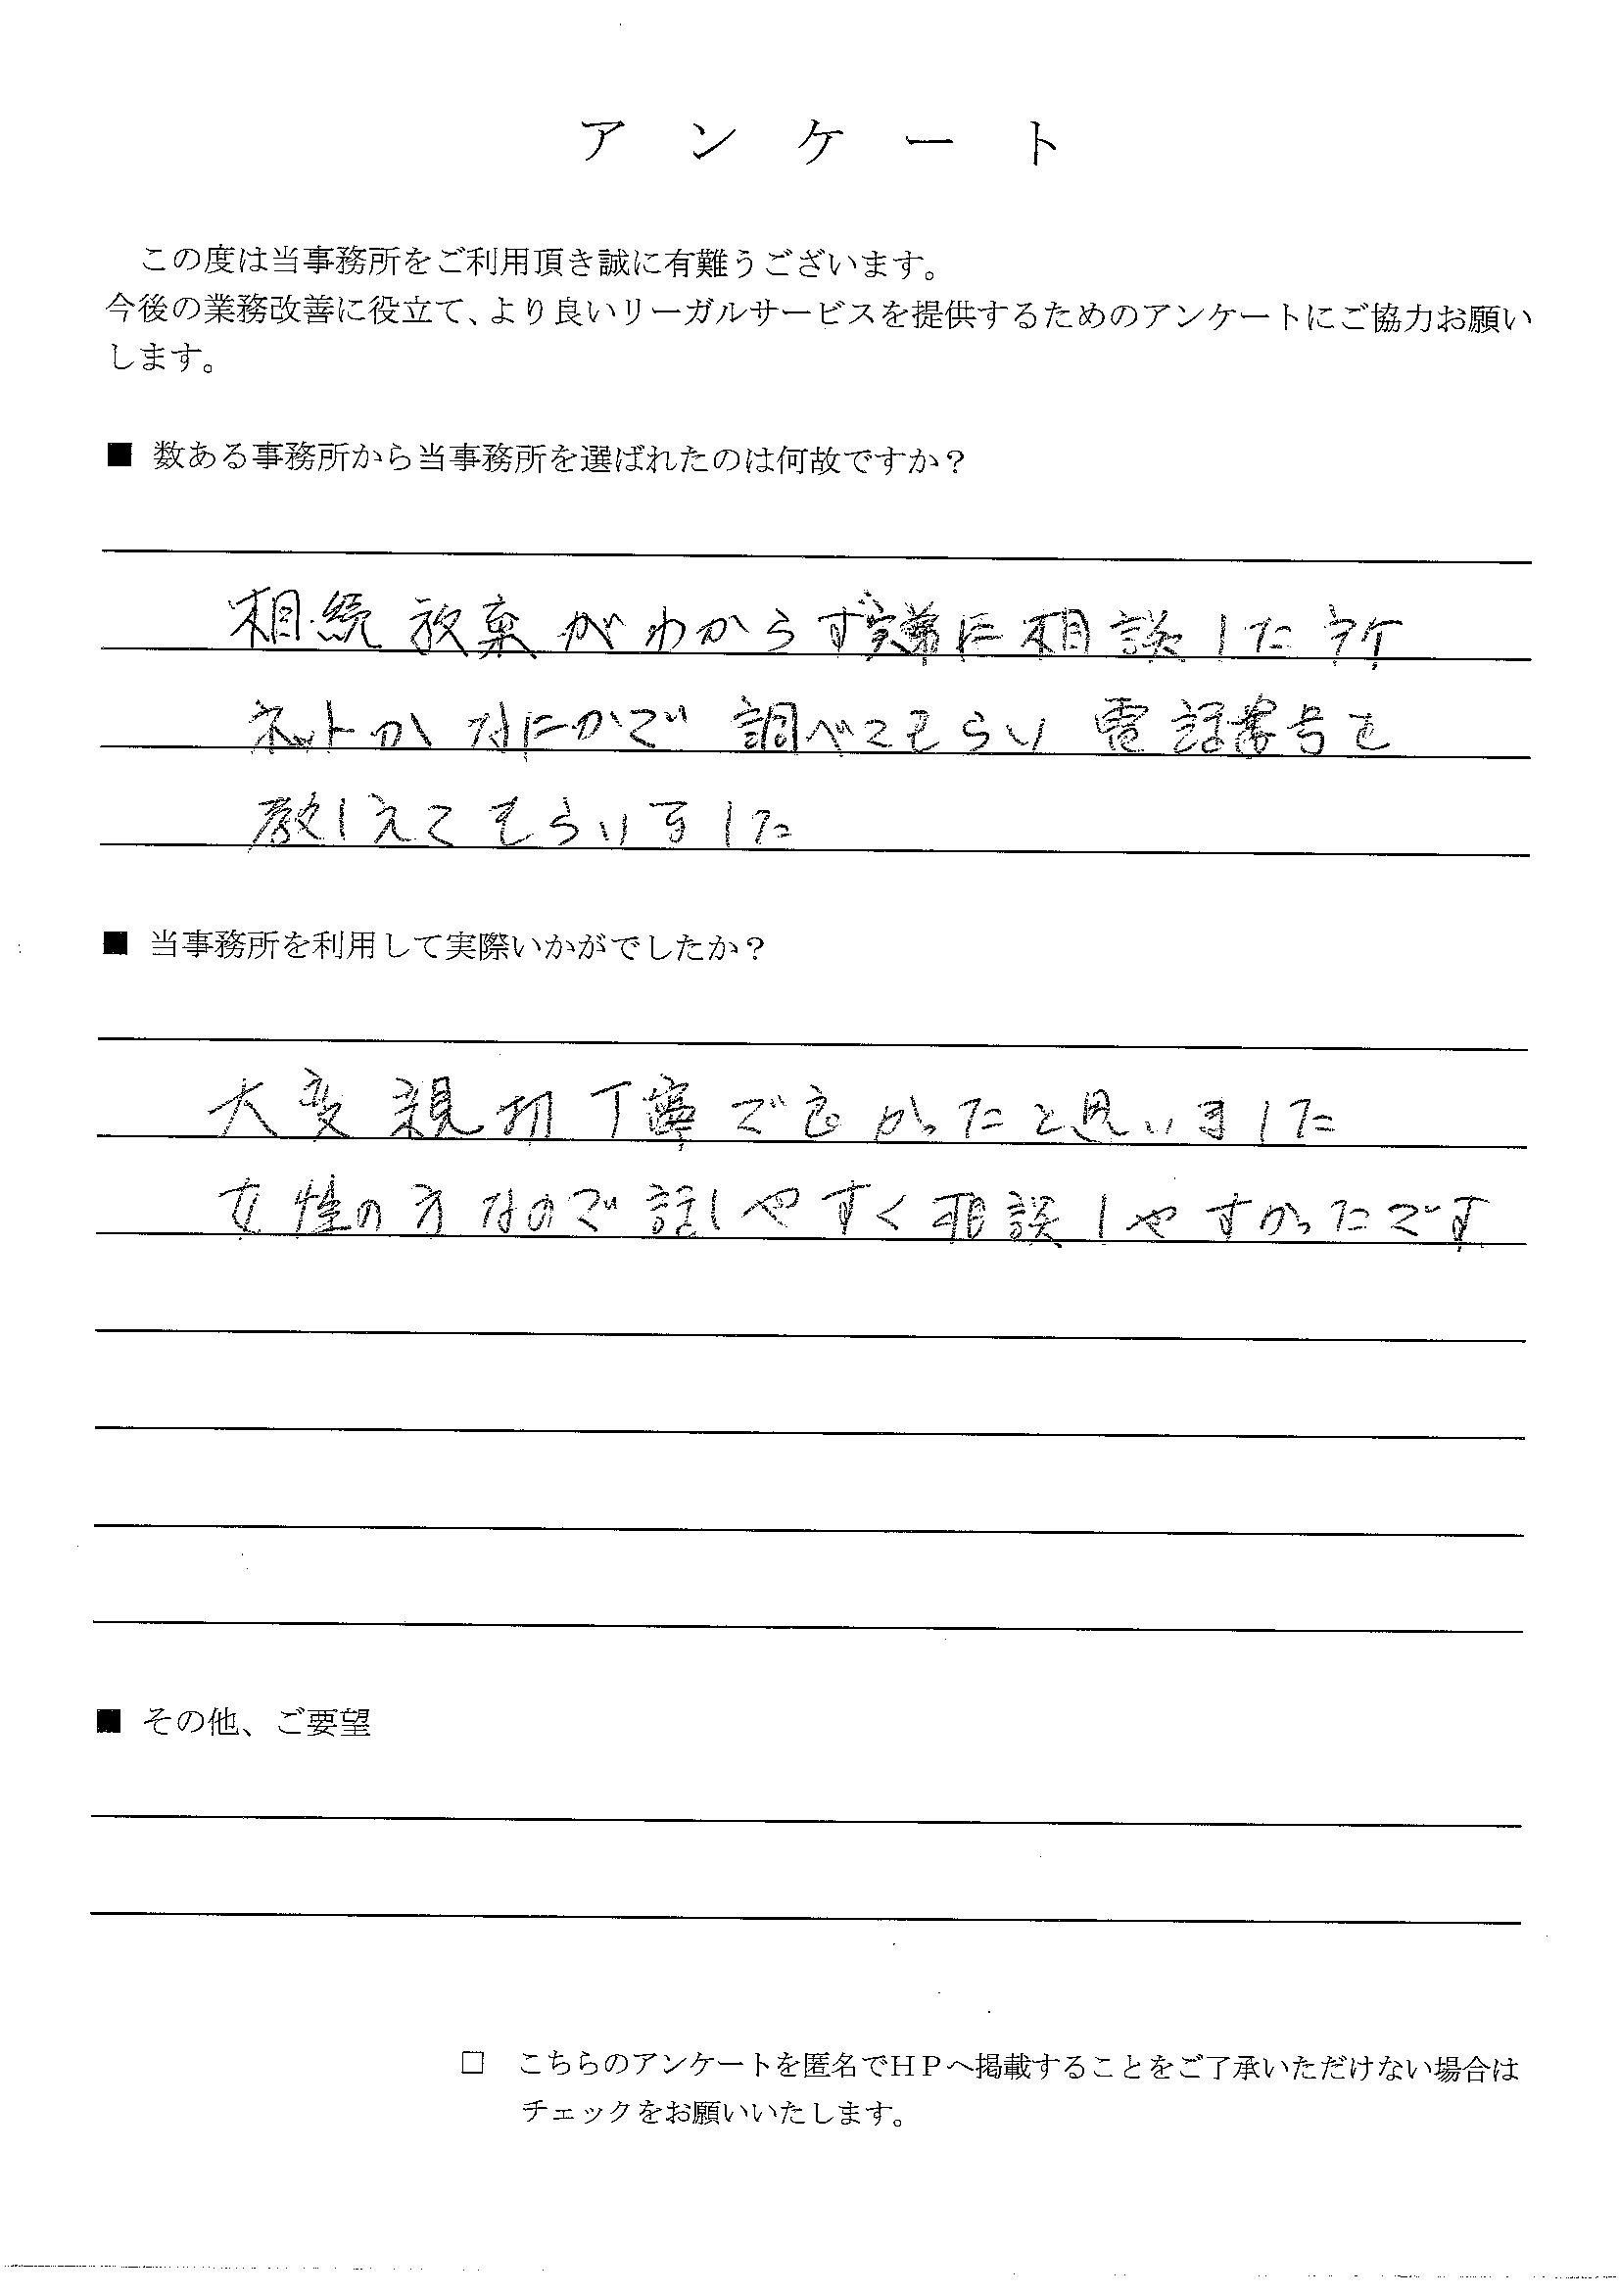 アンケート
この度は当事務所をご利用頂き誠に有難うございます。
今後の業務改善に役立て、より良いリーガルサービスを提供するためのアンケートにご協力お願い
します。
■ 数ある事務所から当事務所を選ばれたのは何故ですか？
相続放棄がわからず実弟に相談した所
ネットかなにかで調べてもらい電話番号を
教しえてもらいました
■ 当事務所を利用して実際いかがでしたか？
大変親切丁寧で良かったと思いました
女性の方なので話しやすく相談しやすかったです
■ その他、ご要望
□ こちらのアンケートを匿名でＨＰへ掲載することをご了承いただけない場合は
チェックをお願いいたします。